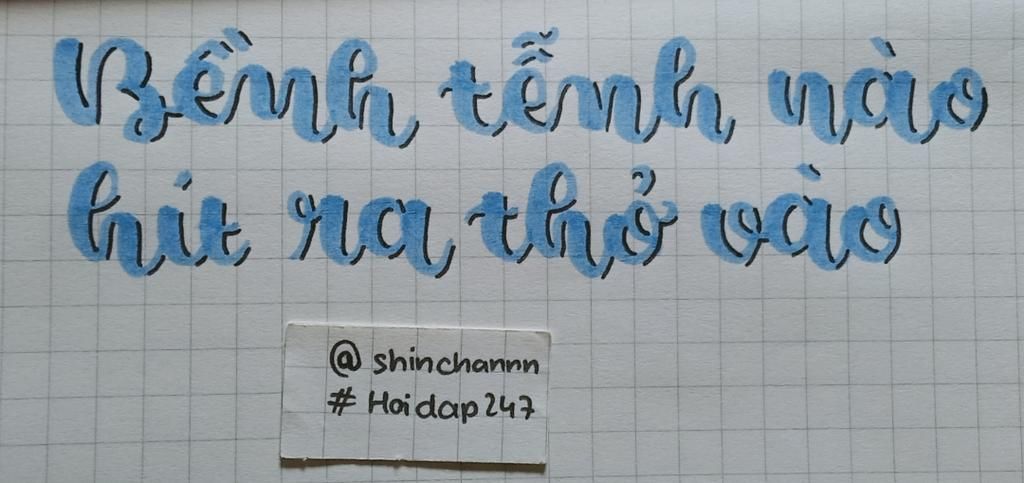 Bềnh tễnh nào
hít ra thở vào
@ shinchannn
# Hoidap247